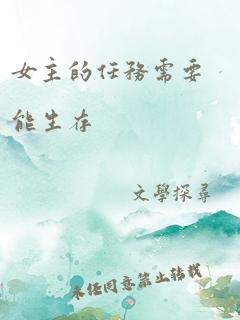 女主的任務需要
能生存
文學探尋
未經同意禁止轉載